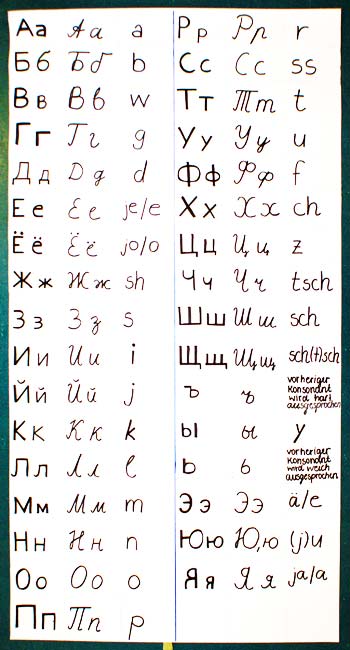 Аа Аа a
Бб Бб b
Вв Вв w
Гг Гг g
Дд Дд d
Ее Ее je/e
Ёё Ёё jo/o
Жж Жж sh
Зз Зз s
Ии Ии i
Йй Йй j
Кк Кк k
Лл Лл l
Мм Мм m
Нн Нн n
Оо Оо o
Пп Пп p
Рр Рр r
Сс Сс ss
Тт Тт t
Уу Уу u
Фф Фф f
Хх Хх ch
Цц Цц z
Чч Чч tsch
Шш Шш sch
Щщ Щщ sch(t)sch
ъ ъ vorheriger
Konsonant
wird hart
ausgesprochen
ы ы y
ь ь vorheriger
Konsonant
wird weich
ausgesprochen
Ээ Ээ ä/e
Юю Ю,ю (j)u
Яя Яя ja/a